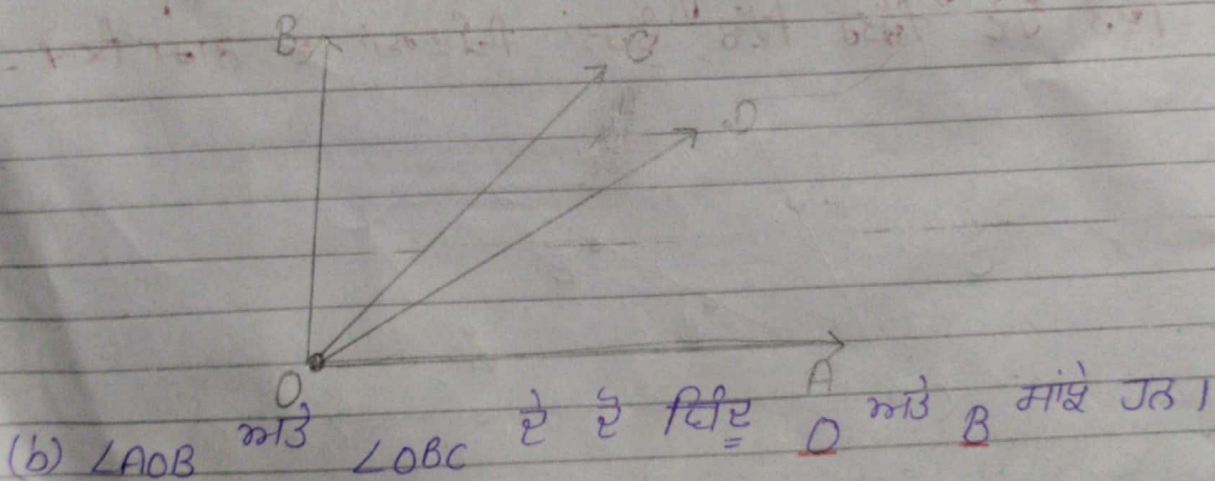 B
C
D
O
A
(b) ∠AOB ਅਤੇ ∠OBC ਦੇ ਦੋ ਬਿੰਦੂ O ਅਤੇ B ਸਾਂਝੇ ਹਨ।